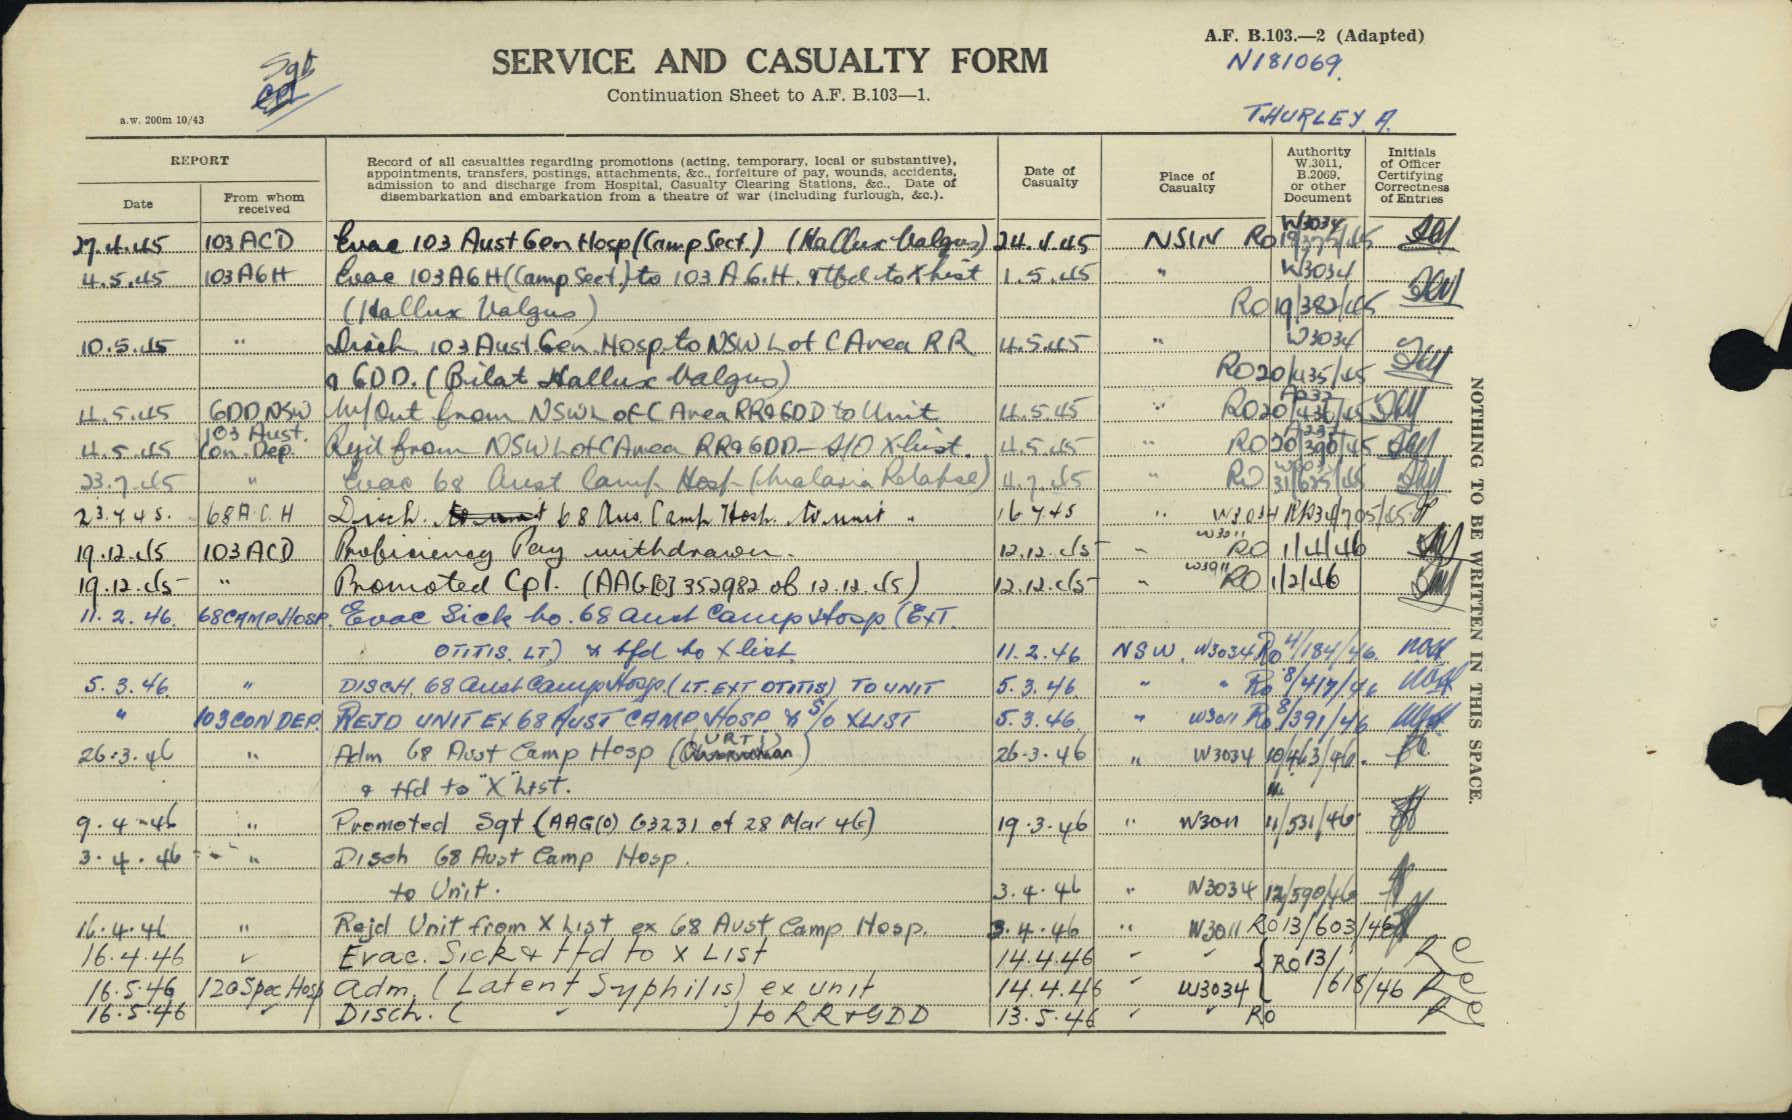 A.F. B.103.—2 (Adapted)
N181069.
Sgt
Cpl
SERVICE AND CASUALTY FORM
Continuation Sheet to A.F. B.103—1.
a.w. 200m 10/43
THURLEY. A.
REPORT
Date
From whom received
Record of all casualties regarding promotions (acting, temporary, local or substantive),
appointments, transfers, postings, attachments, &c., forfeiture of pay, wounds, accidents,
admission to and discharge from Hospital, Casualty Clearing Stations, &c., Date of
disembarkation and embarkation from a theatre of war (including furlough, &c.).
Date of Casualty
Place of Casualty
Authority W.3011, B.2069, or other Document
Initials of Officer Certifying Correctness of Entries
W3034
27.4.45 103 ACD Evac 103 Aust Gen Hosp (Camp Sect.) (Hallux Valgus) 24.4.45 NSW RO 19/375/45
W3034
4.5.45 103 AGH Evac 103 AGH (Camp Sect) to 103 A.G.H. & tfd to X list 1.5.45 "
(Hallux Valgus) RO 19/382/45
10.5.45 " Disch 103 Aust Gen. Hosp. to NSW L of C Area RR 4.5.45 " W3034
& GDD. (Bilat Hallux Valgus) RO 20/435/45
4.5.45 GDD NSW M/Out from NSW L of C Area RR & GDD to Unit 4.5.45 " RO 20/430/45
4.5.45 103 Aust. Con. Dep. Rejd from NSW L of C Area RR & GDD – S/O X list. 4.5.45 " RO 20/390/45
23.7.45 " Evac 68 Aust Camp Hosp (Malaria Relapse) 4.7.45 " RO 31/625/45
23.7.45. 68 A.C.H Disch. to unit 68 Aus. Camp Hosp. to unit " 16.7.45 " W3034 34/705/45
19.12.45 103 ACD Proficiency Pay withdrawn. 12.12.45 " W3011 RO 1/4/46
19.12.45 " Promoted Cpl. (AAG[O] 352982 of 12.12.45) 12.12.45 " W3011 RO 1/2/46
11.2.46. 68 CAMP HOSP. Evac Sick to. 68 Aust Camp Hosp. (EXT.
OTITIS. LT.) & tfd to X list. 11.2.46 NSW. W3034 RO 4/184/46.
5.3.46. " DISCH. 68 Aust Camp Hosp. (LT. EXT OTITIS) TO UNIT 5.3.46. " " RO 8/417/46
" 103 CON DEP. REJD UNIT EX 68 AUST CAMP HOSP & S/O XLIST 5.3.46. " W3011 RO 8/391/46
26.3.46 " Adm 68 Aust Camp Hosp (Observation URTI) 26.3.46 " W3034 10/463/46.
& tfd to "X" List.
9.4.46 " Promoted Sgt (AAG(O) 63231 of 28 Mar 46) 19.3.46 " W3011 11/531/46
3.4.46 " Disch 68 Aust Camp Hosp.
to Unit. 3.4.46 " W3034 12/590/46
16.4.46 " Rejd Unit from X List ex 68 Aust Camp Hosp. 3.4.46 " W3011 RO 13/603/46
16.4.46 " Evac. Sick & tfd to X List 14.4.46 " " RO 13/ RC
16.5.46 120 Spec Hosp Adm. (Latent Syphilis) ex unit 14.4.46 " W3034 /618/46 RC
16.5.46 " Disch. ( " ) to RR & GDD 13.5.46 " " RO RC
NOTHING TO BE WRITTEN IN THIS SPACE.